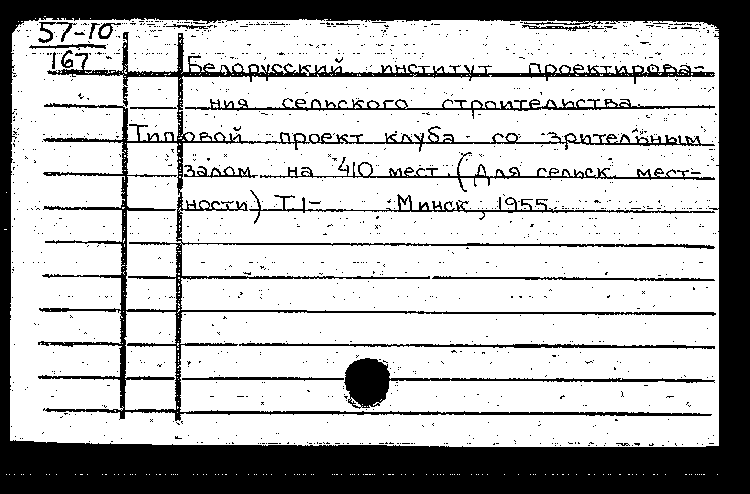 57-10
167
Белорусский институт проектирова-
ния сельского строительства.
Типовой проект клуба со зрительным
залом на 410 мест. (Для сельск. мест-
ности) Т.1- Минск, 1955.